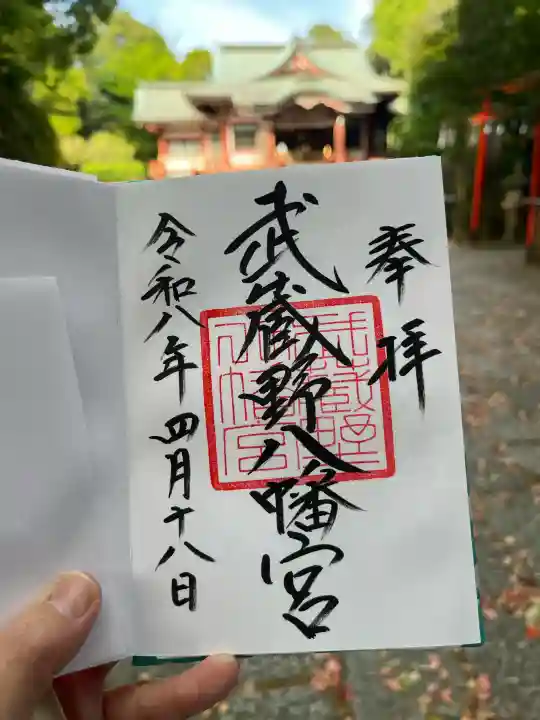 奉拝
武蔵野八幡宮
武蔵野八幡宮
令和八年四月十八日